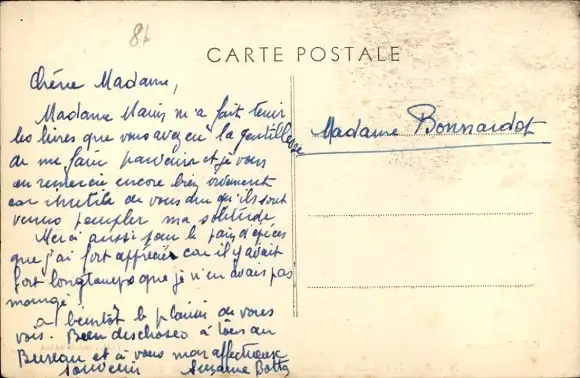 86
CARTE POSTALE
Chère Madame,
Madame Marin m'a fait tenir
les livres que vous avez eu la gentillesse
de me faire parvenir et je vous
en remercie encore bien vivement
car inutile de vous dire qu'ils sont
venus peupler ma solitude
Merci aussi pour le pain d'épices
que j'ai fort apprécié car il y avait
fort longtemps que je n'en avais pas
mangé
à bientôt le plaisir de vous
voir. Bien des choses à tous au
Bureau et à vous mon affectueux
souvenir Suzanne
Madame Bonnardot